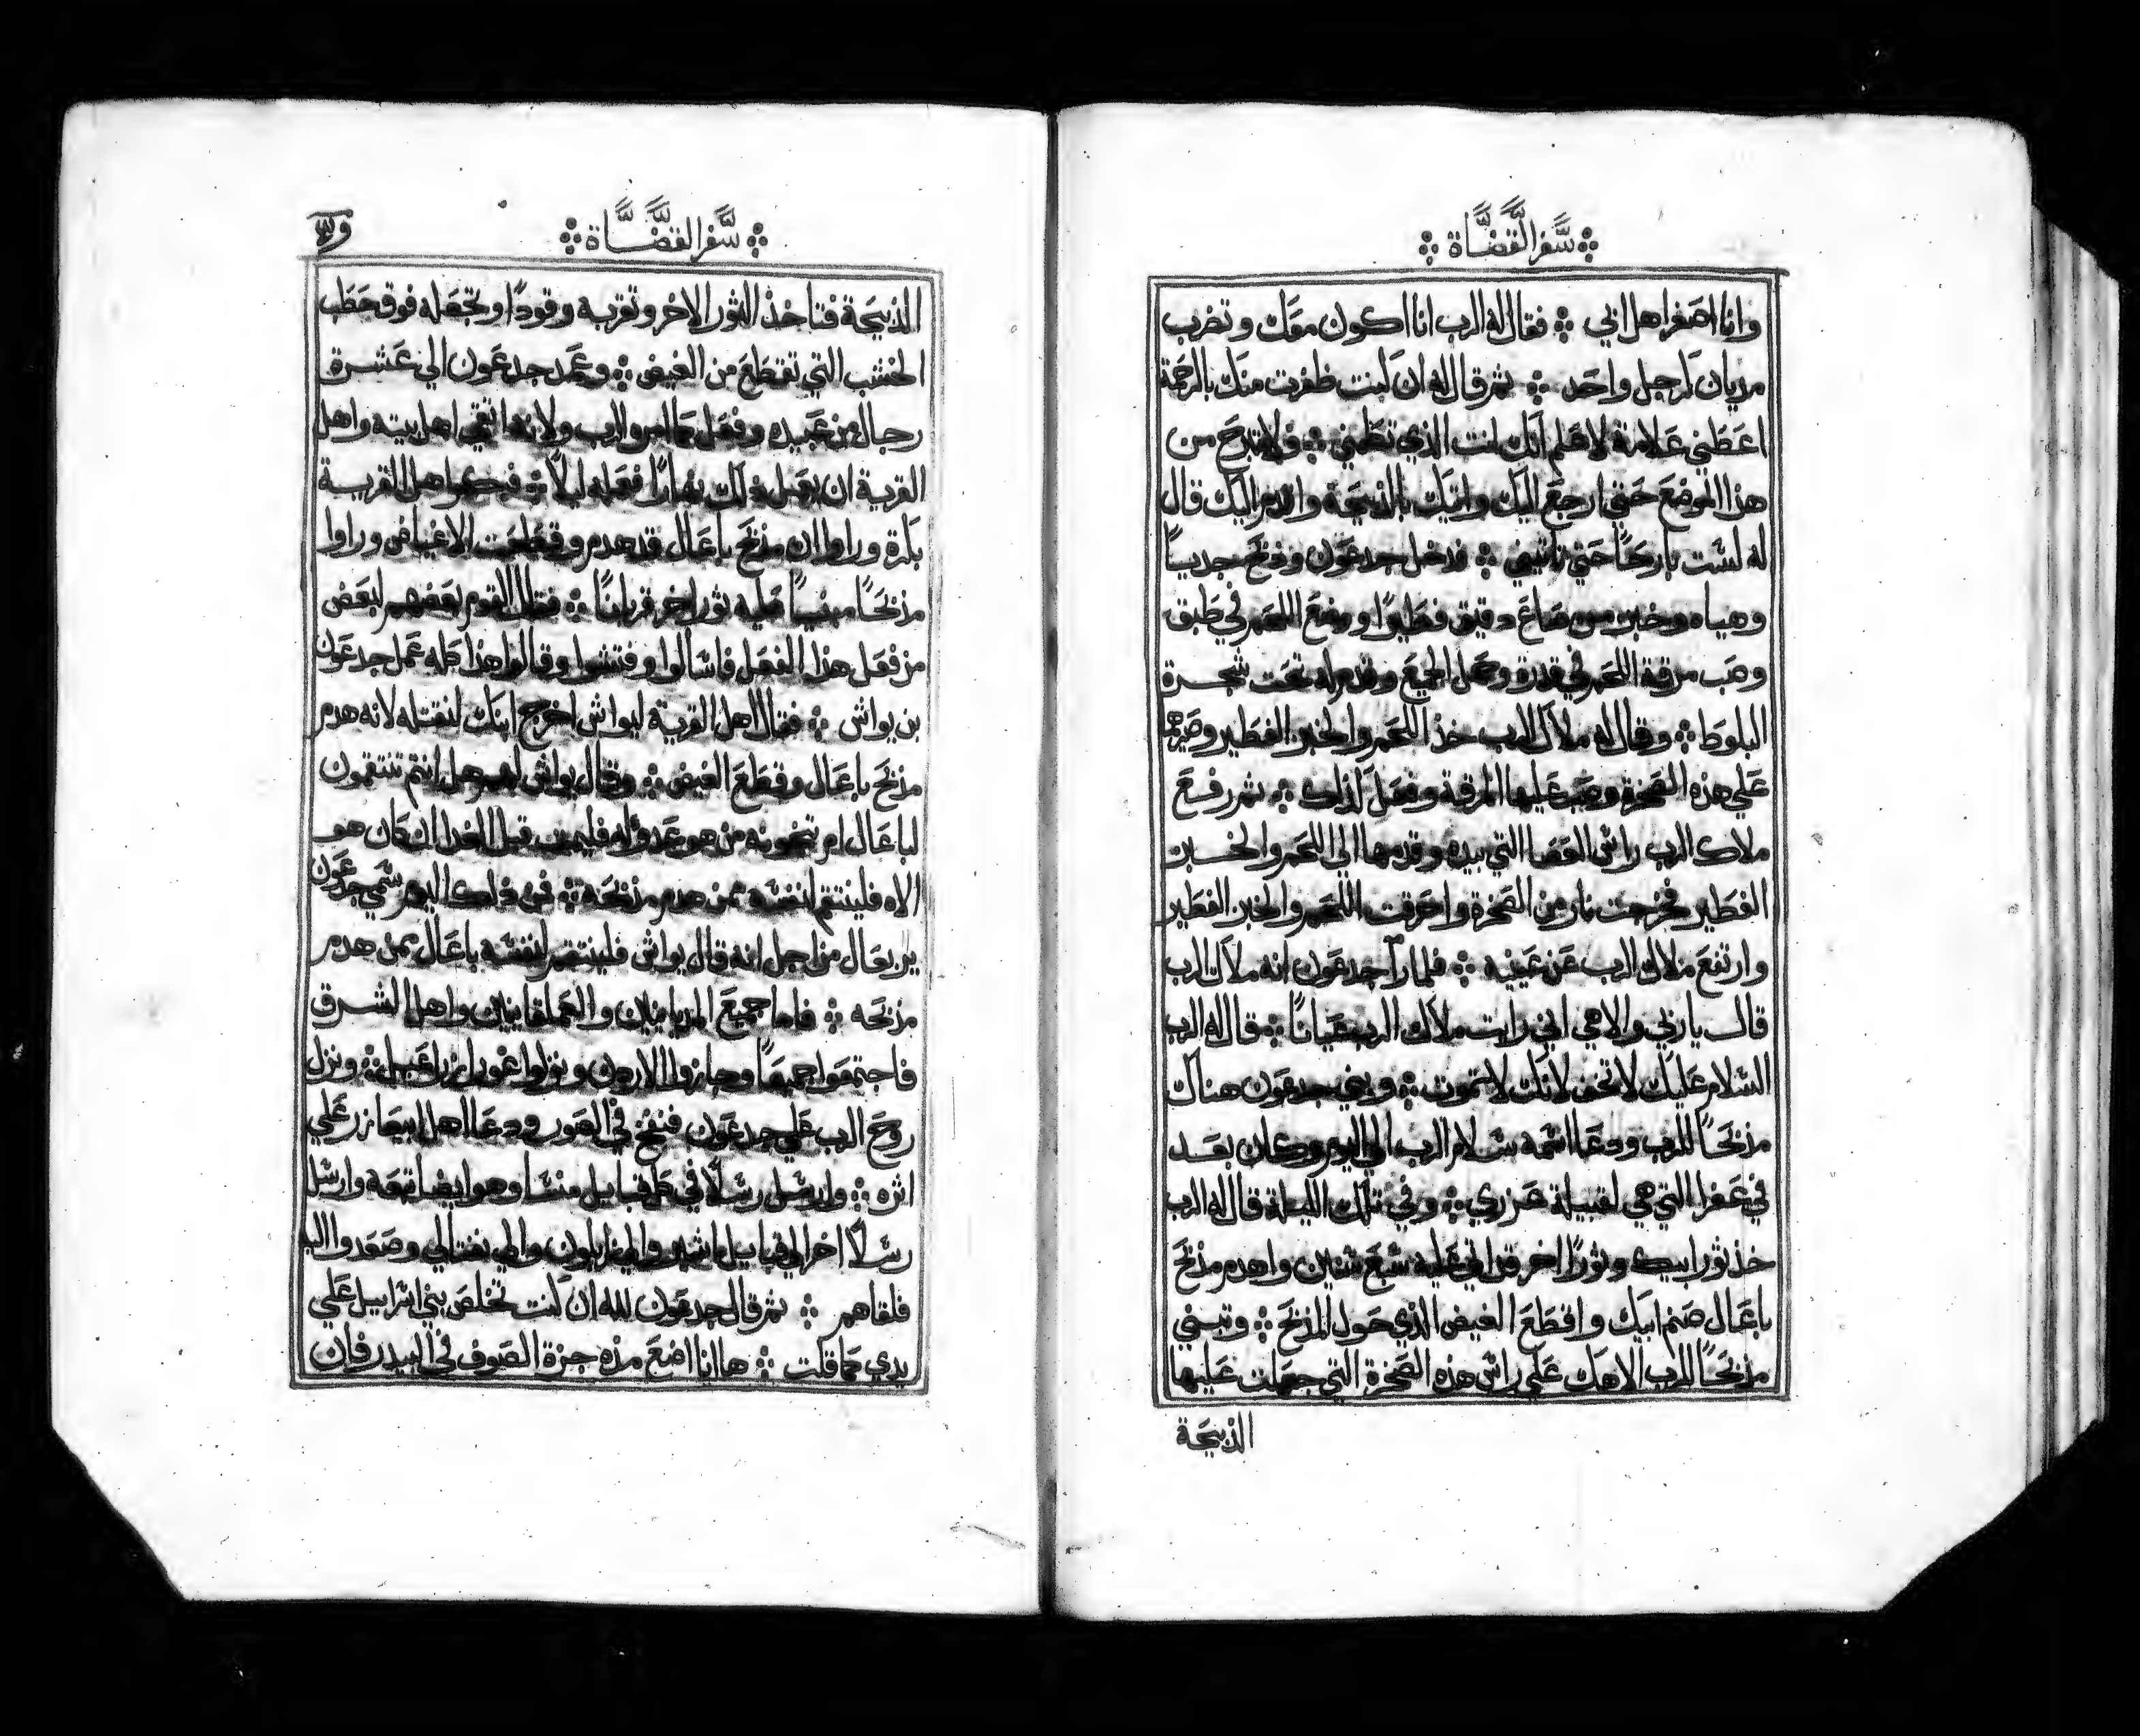 سفر القضاة
وانا اصغر اهل ابي فقال له الرب انا اكون معك وتضرب
مديان كرجل واحد ثم قال له ان كنت ظفرت منك بالرحمة
اعطني علامة لاعلم انك انت الذي فلا تبرح من
هذا الموضع حتي ارجع اليك واتيك بالذبيحة واليك قال
له لست بارحًا حتي تاتيني فدخل جدعون وذبح جديا
وهياه وخبز من صاع دقيق فطيرًا ووضع اللحم في طبق
وصب مرقة اللحم في قدرة وحمل الجميع وقدم له تحت شجرة
البلوط وقال له ملاك الرب خذ اللحم والخبز الفطير وصيرهما
علي هذه الصخرة وصب عليها المرقة وفعل كذلك ثم رفع
ملاك الرب راس العصا التي بيده وقدمها الي اللحم والخبز
الفطير فخرجت نار من الصخرة واحرقت اللحم والخبز الفطير
وارتفع ملاك الرب عن عينيه فلما را جدعون انه ملاك الرب
قال يا ربي والاهي اني رايت ملاك الرب عيانًا قال له الرب
السلام عليك لا تخف لانك لا تموت وبني جدعون هناك
مذبحًا للرب ودعا اسمه سلام الرب الي اليوم وكان بعد
في عفرا التي هي لقبيلة عزري وفي تلك الليلة قال له الرب
خذ ثور ابيك وثورًا اخر قد اتي عليه سبع سنين واهدم مذبح
باعال صنم ابيك واقطع الغيض الذي حول المذبح وتبني
مذبحًا للرب الاهك علي راس هذه الصخرة التي جعلت عليها
الذبيحة
سفر القضاة
الذبيحة فتاخذ الثور الاخر وتقربه وقودًا وتجعله فوق حطب
الخشب التي تقطع من الغيض وعمد جدعون الي عشرة
رجال من عبيده وفعل كما امره الرب ولانه اتقي اهل بيته واهل
القرية ان يفعل ذلك نهارًا فعله ليلًا فبكروا اهل القرية
باكرة وراوا ان مذبح باعال قد هدم وقطعت الاغياض وراوا
مذبحًا مبنيًا عليه ثور اخر قربانًا فقال القوم بعضهم لبعض
من فعل هذا الفعل فاسالوا وفتشوا وقالوا هذا كله عمل جدعون
بن يواش فقال اهل القرية ليواش اخرج ابنك لنقتله لانه هدم
مذبح باعال وقطع الغيض وقال يواش لهم هل انتم تنتقمون
لباعال ام من هو عدو له فليمت قبل الغد ان كان هو
الاه فلينتقم لنفسه ممن هدم مذبحه فمن ذلك اليوم سمي جدعون
يربعال من اجل انه قال يواش فلينتصر لنفسه باعال ممن هدم
مذبحه فاما جميع المديانيين والعملقانيين واهل الشرق
فاجتمعوا جميعًا وجازوا الاردن ونزلوا غور ونزل
روح الرب علي جدعون فنفخ في الصور ودعا اهل ابيعازر علي
اثره وارسل رسلًا في كل قبايل منسا وهو ايضا تبعه وارسل
رسلًا اخر الي قبايل اشير والي زابلون والي نفتالي وصعدوا اليه
فلقاهم ثم قال جدعون لله ان كنت تخلص بني اسراييل علي
يدي كما قلت ها انا اضع هذه جزة الصوف في البيدر فان